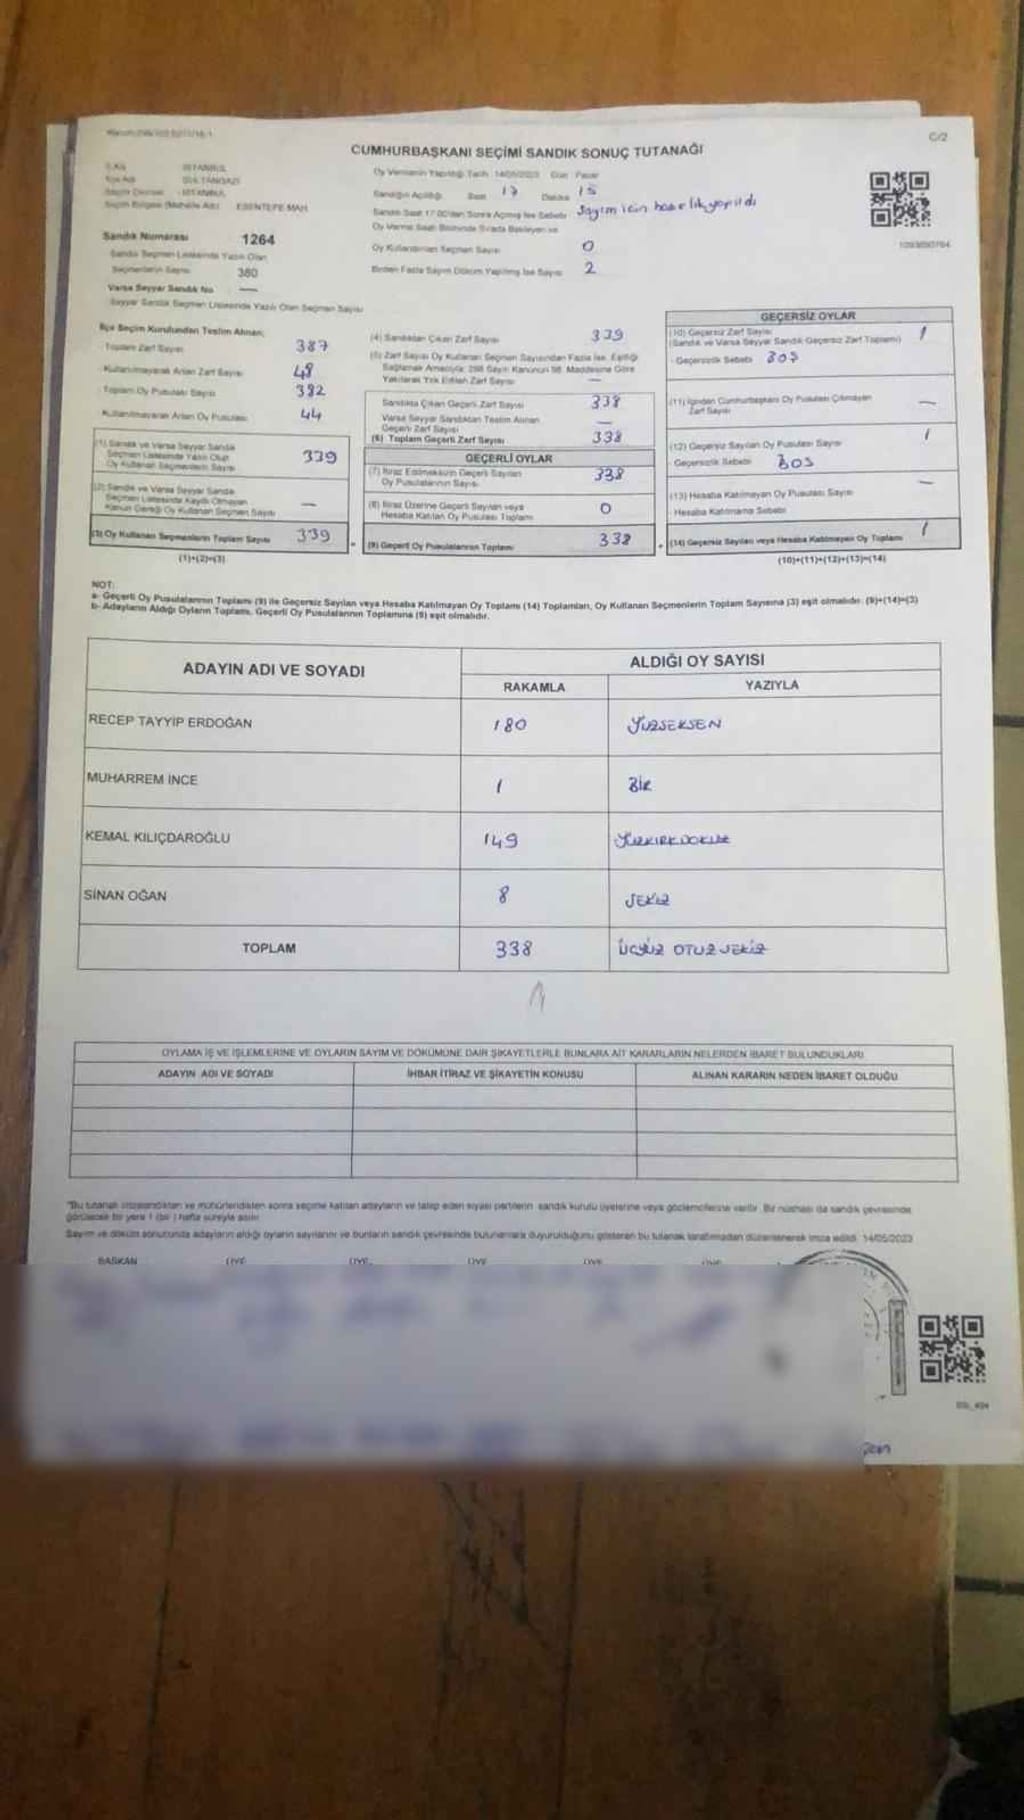 C/2
CUMHURBAŞKANI SEÇİMİ SANDIK SONUÇ TUTANAĞI
İSTANBUL
SULTANGAZİ
İSTANBUL
ESENTEPE MAH.
Oy Vermenin Yapıldığı Tarih 14/05/2023 Gün Pazar
Sandığın Açıldığı Saat 17 Dakika 15
Sandık Saat 17.00'den Sonra Açılmış İse Sebebi Sayım için hazırlık yapıldı
Oy Verme Saati Bitiminde Sırada Bekleyen ve
Oy Kullandırılan Seçmen Sayısı 0
Birden Fazla Sayım Döküm Yapılmış İse Sayısı 2
Sandık Numarası 1264
Sandık Seçmen Listesinde Yazılı Olan
Seçmenlerin Sayısı 380
Varsa Seyyar Sandık No —
Seyyar Sandık Seçmen Listesinde Yazılı Olan Seçmen Sayısı
İlçe Seçim Kurulundan Teslim Alınan;
Toplam Zarf Sayısı 387
Kullanılmayarak Artan Zarf Sayısı 48
Toplam Oy Pusulası Sayısı 382
Kullanılmayarak Artan Oy Pusulası 44
(1) Sandık ve Varsa Seyyar Sandık
Seçmen Listesinde Yazılı Olup
Oy Kullanan Seçmenlerin Sayısı 339
(2) Sandık ve Varsa Seyyar Sandık
Seçmen Listesinde Kayıtlı Olmayan
Kanun Gereği Oy Kullanan Seçmen Sayısı —
(3) Oy Kullanan Seçmenlerin Toplam Sayısı 339
(1)+(2)=(3)
(4) Sandıktan Çıkan Zarf Sayısı 339
(5) Zarf Sayısı Oy Kullanan Seçmen Sayısından Fazla İse, Eşitliği
Sağlamak Amacıyla; 298 Sayılı Kanunun 98. Maddesine Göre
Yakılarak Yok Edilen Zarf Sayısı —
Sandıkta Çıkan Geçerli Zarf Sayısı 338
Varsa Seyyar Sandıktan Teslim Alınan
Geçerli Zarf Sayısı —
(6) Toplam Geçerli Zarf Sayısı 338
GEÇERLİ OYLAR
(7) İtiraz Edilmeksizin Geçerli Sayılan
Oy Pusulalarının Sayısı 338
(8) İtiraz Üzerine Geçerli Sayılan veya
Hesaba Katılan Oy Pusulası Toplamı 0
(9) Geçerli Oy Pusulalarının Toplamı 338
GEÇERSİZ OYLAR
(10) Geçersiz Zarf Sayısı
(Sandık ve Varsa Seyyar Sandık Geçersiz Zarf Toplamı) 1
- Geçersizlik Sebebi BOŞ
(11) İçinden Cumhurbaşkanı Oy Pusulası Çıkmayan
Zarf Sayısı —
(12) Geçersiz Sayılan Oy Pusulası Sayısı 1
- Geçersizlik Sebebi BOS
(13) Hesaba Katılmayan Oy Pusulası Sayısı —
- Hesaba Katılmama Sebebi
(14) Geçersiz Sayılan veya Hesaba Katılmayan Oy Toplamı 1
(10)+(11)+(12)+(13)=(14)
NOT:
a- Geçerli Oy Pusulalarının Toplamı (9) ile Geçersiz Sayılan veya Hesaba Katılmayan Oy Toplamı (14) Toplamları, Oy Kullanan Seçmenlerin Toplam Sayısına (3) eşit olmalıdır. (9)+(14)=(3)
b- Adayların Aldığı Oyların Toplamı, Geçerli Oy Pusulalarının Toplamına (9) eşit olmalıdır.
ADAYIN ADI VE SOYADI
ALDIĞI OY SAYISI
RAKAMLA YAZIYLA
RECEP TAYYİP ERDOĞAN 180 YÜZSEKSEN
MUHARREM İNCE 1 BİR
KEMAL KILIÇDAROĞLU 149 YÜZKIRKDOKUZ
SİNAN OĞAN 8 SEKİZ
TOPLAM 338 ÜÇYÜZ OTUZ SEKİZ
OYLAMA İŞ VE İŞLEMLERİNE VE OYLARIN SAYIM VE DÖKÜMÜNE DAİR ŞİKAYETLERLE BUNLARA AİT KARARLARIN NELERDEN İBARET BULUNDUKLARI
ADAYIN ADI VE SOYADI İHBAR İTİRAZ VE ŞİKAYETİN KONUSU ALINAN KARARIN NEDEN İBARET OLDUĞU
"Bu tutanak imzalandıktan ve mühürlendikten sonra seçime katılan adayların ve talep eden siyasi partilerin sandık kurulu üyelerine veya gözlemcilerine verilir. Bir nüshası da sandık çevresinde
görülecek bir yere 1 (bir) hafta süreyle asılır.
Sayım ve döküm sonucunda adayların aldığı oyların sayılarını ve bunların sandık çevresinde bulunanlara duyurulduğunu gösteren bu tutanak tarafımızdan düzenlenerek imza edildi. 14/05/2023
BAŞKAN ÜYE ÜYE ÜYE ÜYE ÜYE